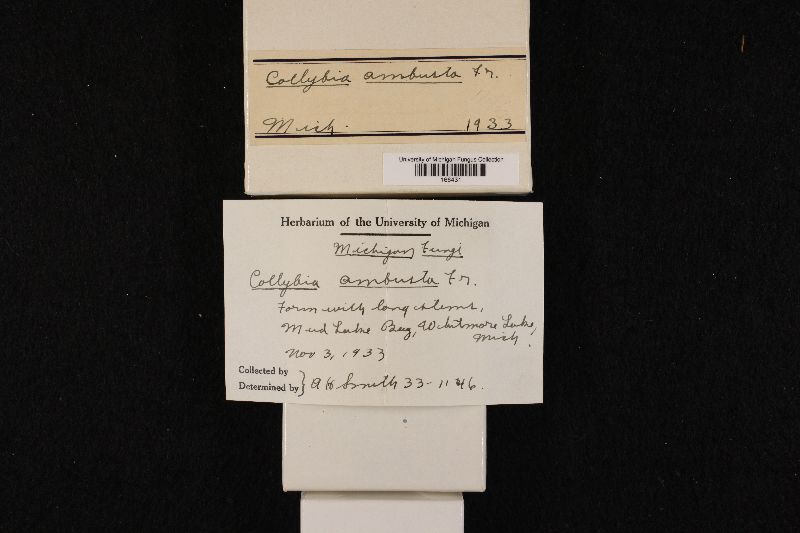 Collybia ambusta Fr.
Mich. 1933
University of Michigan Fungus Collection
Herbarium of the University of Michigan
Michigan Fungi
Collybia ambusta Fr.
Form with long stems,
Mud Lake Bog, Whitmore Lake,
Mich.
Nov 3, 1933
Collected by
Determined by } A H Smith 33-1146.